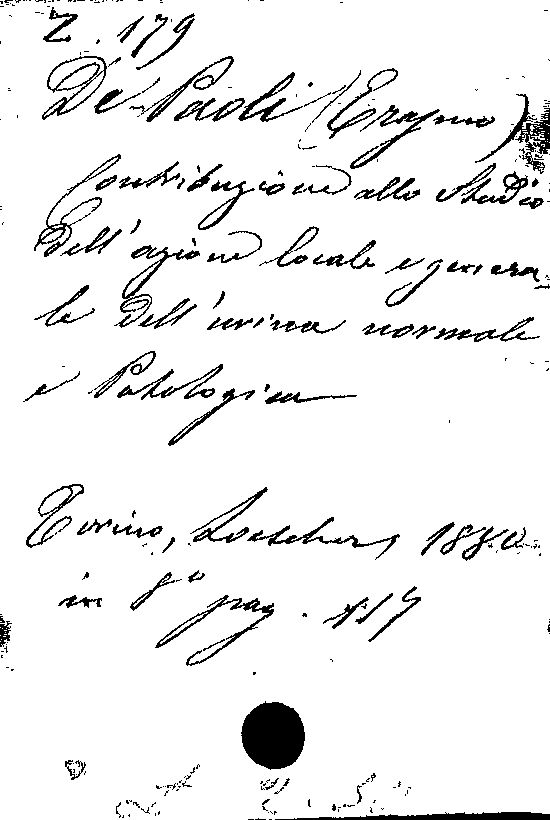 Z. 179
De Paoli (Erasmo)
Contribuzione allo Studio
Dell'azione locale e genera-
le dell'urina normale
e Patologica
Torino, Loescher, 1880
in 8° pag. 117